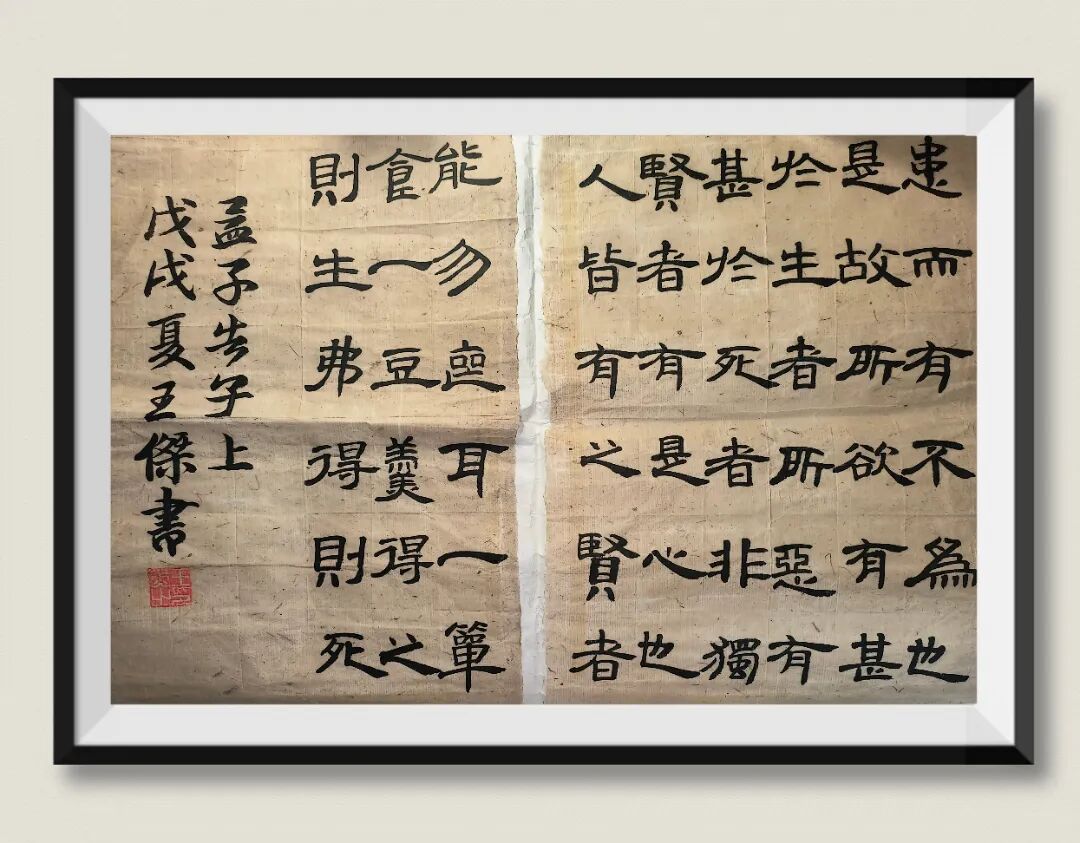 患而有不為也
是故所欲有甚
於生者所惡有
甚於死者非獨
賢者有是心也
人皆有之賢者
能勿喪耳一簞
食一豆羹得之
則生弗得則死
孟子告子上
戊戌夏王傑書